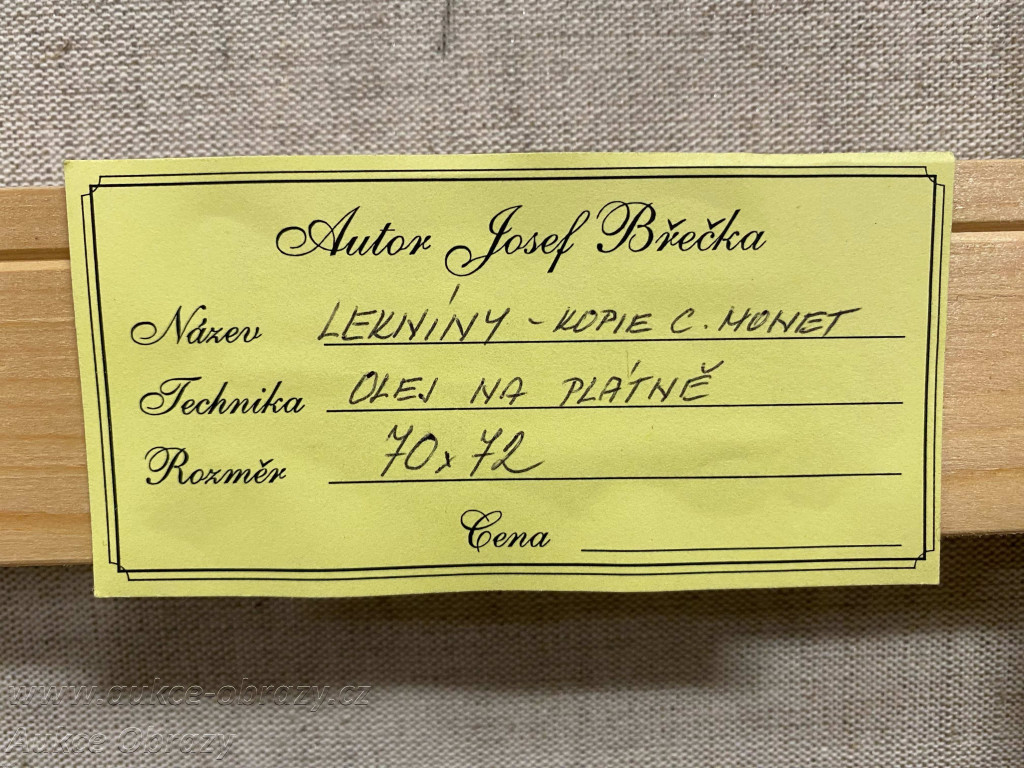 Autor Josef Břečka
Název LEKNÍNY - KOPIE C. MONET
Technika OLEJ NA PLÁTNĚ
Rozměr 70 x 72
Cena
www.aukce-obrazy.cz
Aukce Obrazy